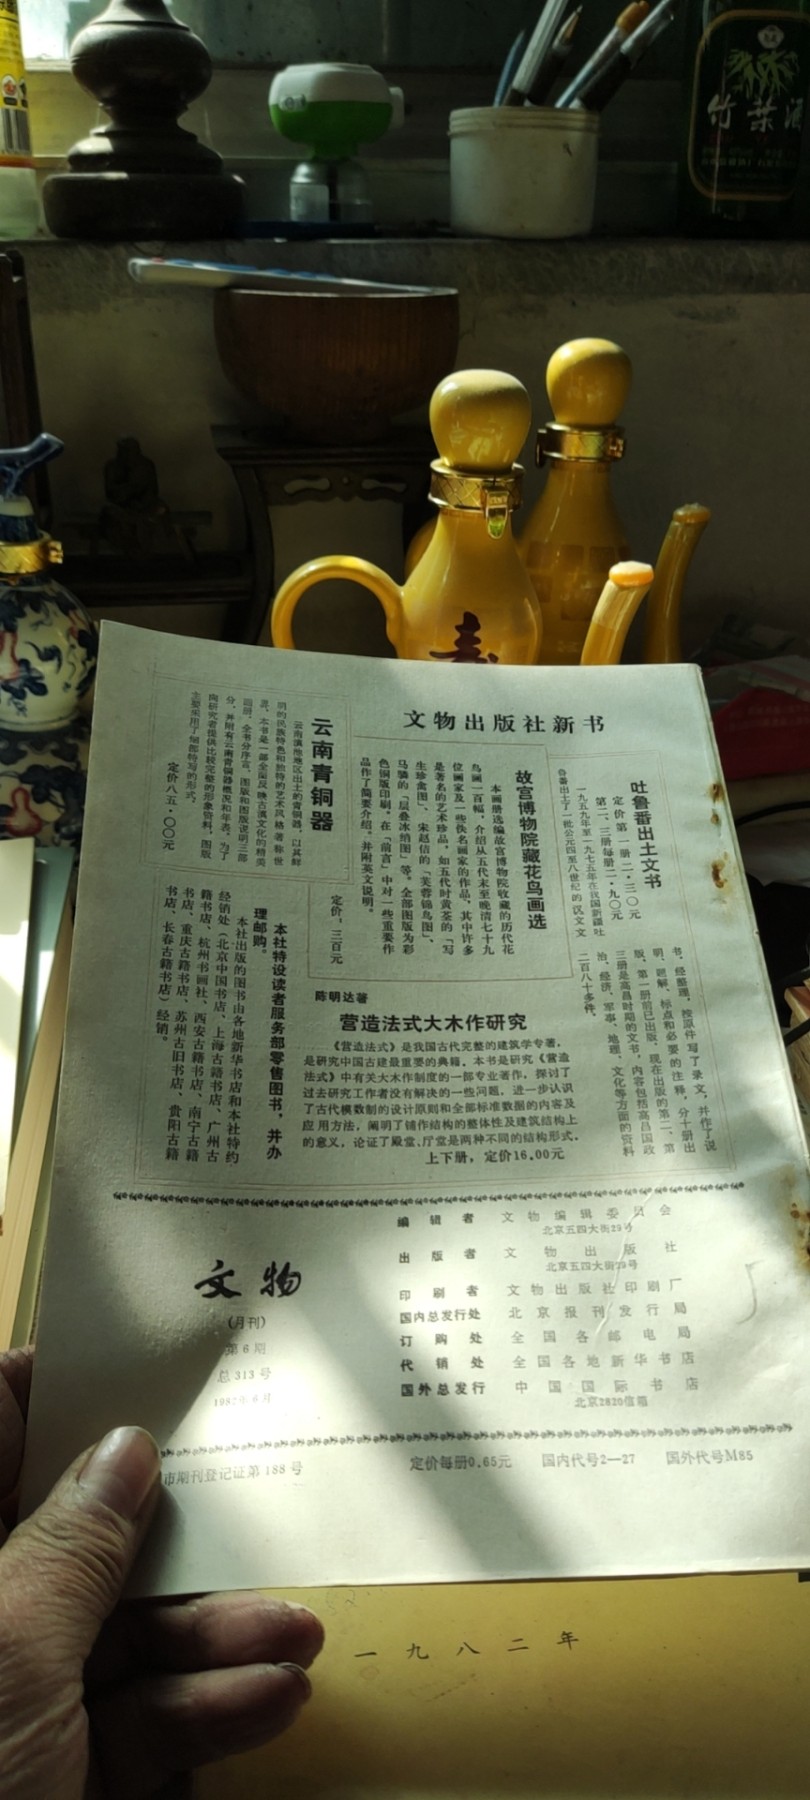 竹葉酒
寿
文物出版社新书
吐鲁番出土文书
定价第一册二·三〇元
第二、三册每册二·九〇元
一九五九年至一九七五年在我国新疆吐
鲁番出土了一批公元四至八世纪的汉文文
书，经整理，按原件写了录文，并作了说
明、题解、标点和必要的注释，分十册出
版。第一册前已出版，现在出版的第二、第
三册是高昌时期的文书，内容包括高昌国政
治、经济、军事、地理、文化等方面的资料
二百八十多件。
故宫博物院藏花鸟画选
本画册选编故宫博物院收藏的历代花
鸟画一百幅，介绍从五代末至晚清七十九
位画家及一些佚名画家的作品，其中许多
是著名的艺术珍品，如五代时黄筌的「写
生珍禽图」、宋赵佶的「芙蓉锦鸡图」、
马麟的「层叠冰绡图」等。全部图版为彩
色铜版印刷。在「前言」中对一些重要作
品作了简要介绍。并附英文说明。
定价，三百元
云南青铜器
云南滇池地区出土的青铜器，以其鲜
明的民族特色和独特的艺术风格著称世
界。本书是一部全面反映古滇文化的精美
画册，全书分序言、图版和图版说明三部
分，并附有云南青铜器概况和年表。为了
向研究者提供比较完整的形象资料，图版
主要采用了细部特写的形式。
定价八五·〇〇元
陈明达著
营造法式大木作研究
《营造法式》是我国古代完整的建筑学专著，
是研究中国古建最重要的典籍。本书是研究《营造
法式》中有关大木作制度的一部专业著作，探讨了
过去研究工作者没有解决的一些问题，进一步认识
了古代模数制的设计原则和全部标准数据的内容及
应用方法，阐明了铺作结构的整体性及建筑结构上
的意义，论证了殿堂、厅堂是两种不同的结构形式。
上下册，定价16.00元
本社特设读者服务部零售图书，并办
理邮购。
本社出版的图书由各地新华书店和本社特约
经销处（北京中国书店、上海古籍书店、广州古
籍书店、杭州书画社、西安古籍书店、南宁古籍
书店、重庆古籍书店、苏州古旧书店、贵阳古籍
书店、长春古籍书店）经销。
文物
（月刊）
第6期
总313号
1982年6月
编辑者 文物编辑委员会
北京五四大街29号
出版者 文物出版社
北京五四大街29号
印刷者 文物出版社印刷厂
国内总发行处 北京报刊发行局
订购处 全国各邮电局
代销处 全国各地新华书店
国外总发行 中国国际书店
北京2820信箱
市期刊登记证第188号 定价每册0.65元 国内代号2—27 国外代号M85
一九八二年